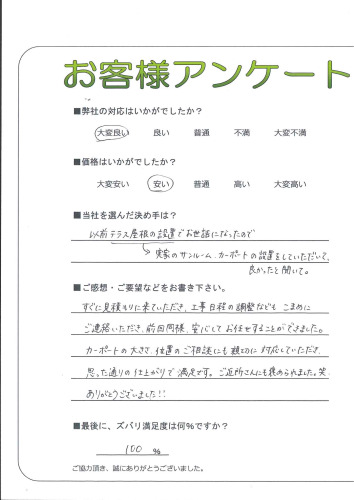 お客様アンケート
■弊社の対応はいかがでしたか？
大変良い 良い 普通 不満 大変不満
■価格はいかがでしたか？
大変安い 安い 普通 高い 大変高い
■当社を選んだ決め手は？
以前テラス屋根の設置でお世話になったので
実家のサンルーム、カーポートの設置をしていただいて、
良かったと聞いて。
■ご感想・ご要望などをお書き下さい。
すぐに見積もりに来ていただき、工事日程の調整なども こまめに
ご連絡いただき、前回同様、安心してお任せすることができました。
カーポートの大きさ、位置のご相談にも親切に対応していただき、
思った通りの仕上がりで満足です。ご近所さんにも褒められました。笑
ありがとうございました!!
■最後に、ズバリ満足度は何％ですか？
100 %
ご協力頂き、誠にありがとうございました。